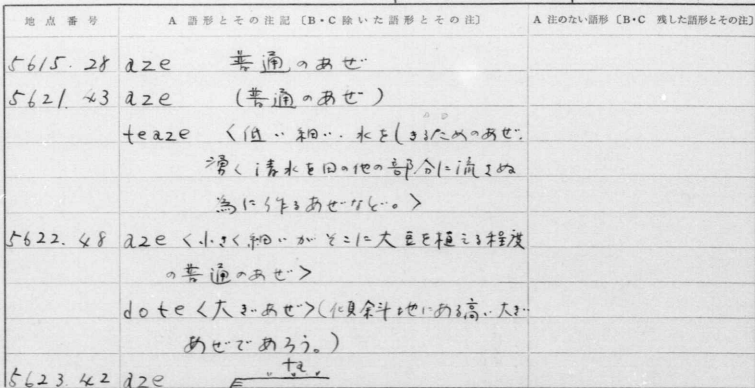 地点番号 A 語形とその注記〔B・C 除いた語形とその注〕 A 注のない語形〔B・C 残した語形とその注〕
5615.28 aze 普通のあぜ
5621.43 aze (普通のあぜ)
teaze 〈低い細い、水をしきるためのあぜ.
湧く清水を田の他の部分に流さぬ
為に作るあぜなど。〉
5622.48 aze〈小さく細いがそこに大豆を植える程度
の普通のあぜ〉
dote〈大きいあぜ〉(傾斜地にある高い大きい
あぜであろう。)
ta
5623.42 aze